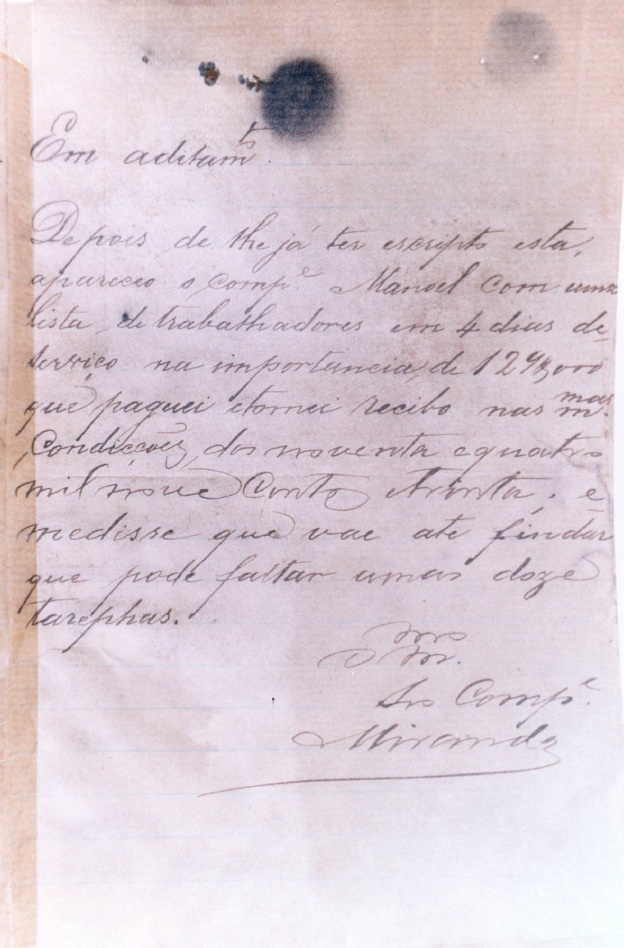 Em aditamto.
Depois de lhe já ter escripto esta,
apareceo o compe. Manoel com uma
lista de trabalhadores em 4 dias de
serviço na importancia de 129$000
que paguei e tomei recibo nas mmas.
Condicções dos noventa e quatro
mil nove Centos e trinta, e
medisse que vae ate findar
que pode faltar umas doze
tarephas.
mo
Compe.
Miranda